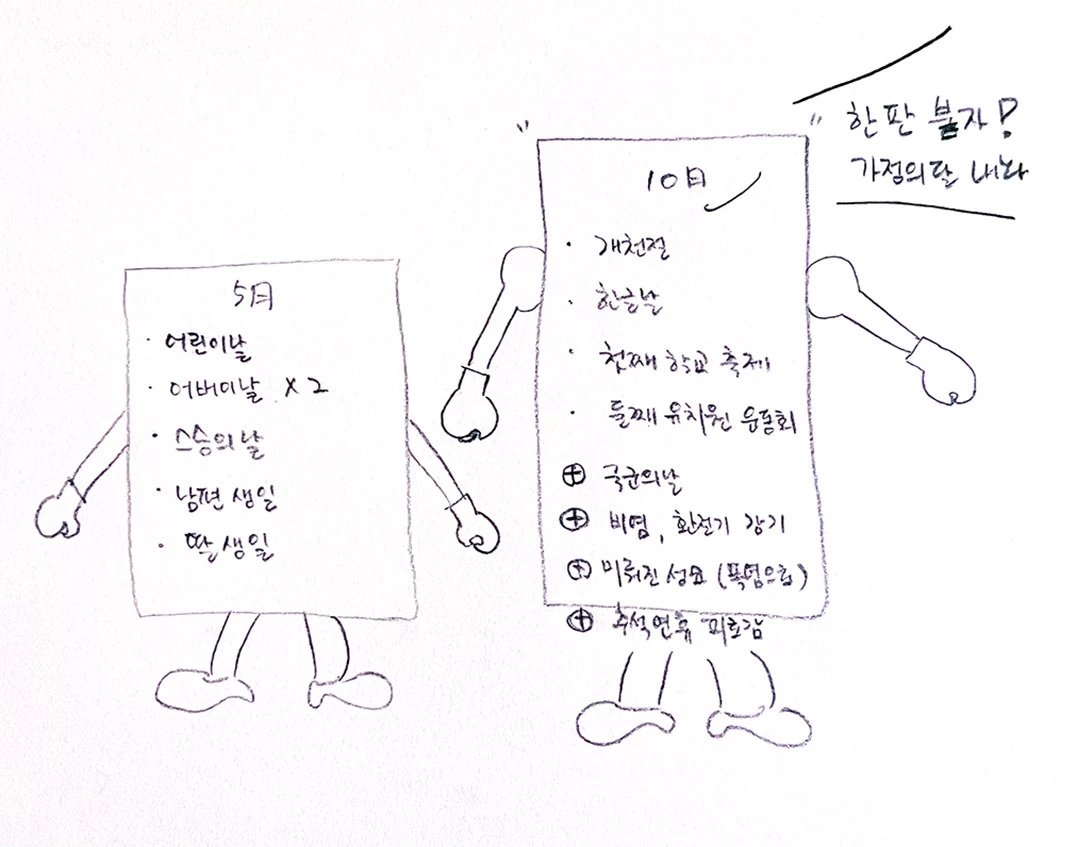 5月
· 어린이날
· 어버이날 x 2
· 스승의날
· 남편 생일
· 딸 생일
10月
· 개천절
· 한글날
· 첫째 학교 축제
· 둘째 유치원 운동회
⊕ 국군의날
⊕ 비염, 환절기 감기
⊕ 미뤄진 성묘 (폭염으로)
⊕ 추석연휴 피로감
" 한판 붙자!
가정의달 나와